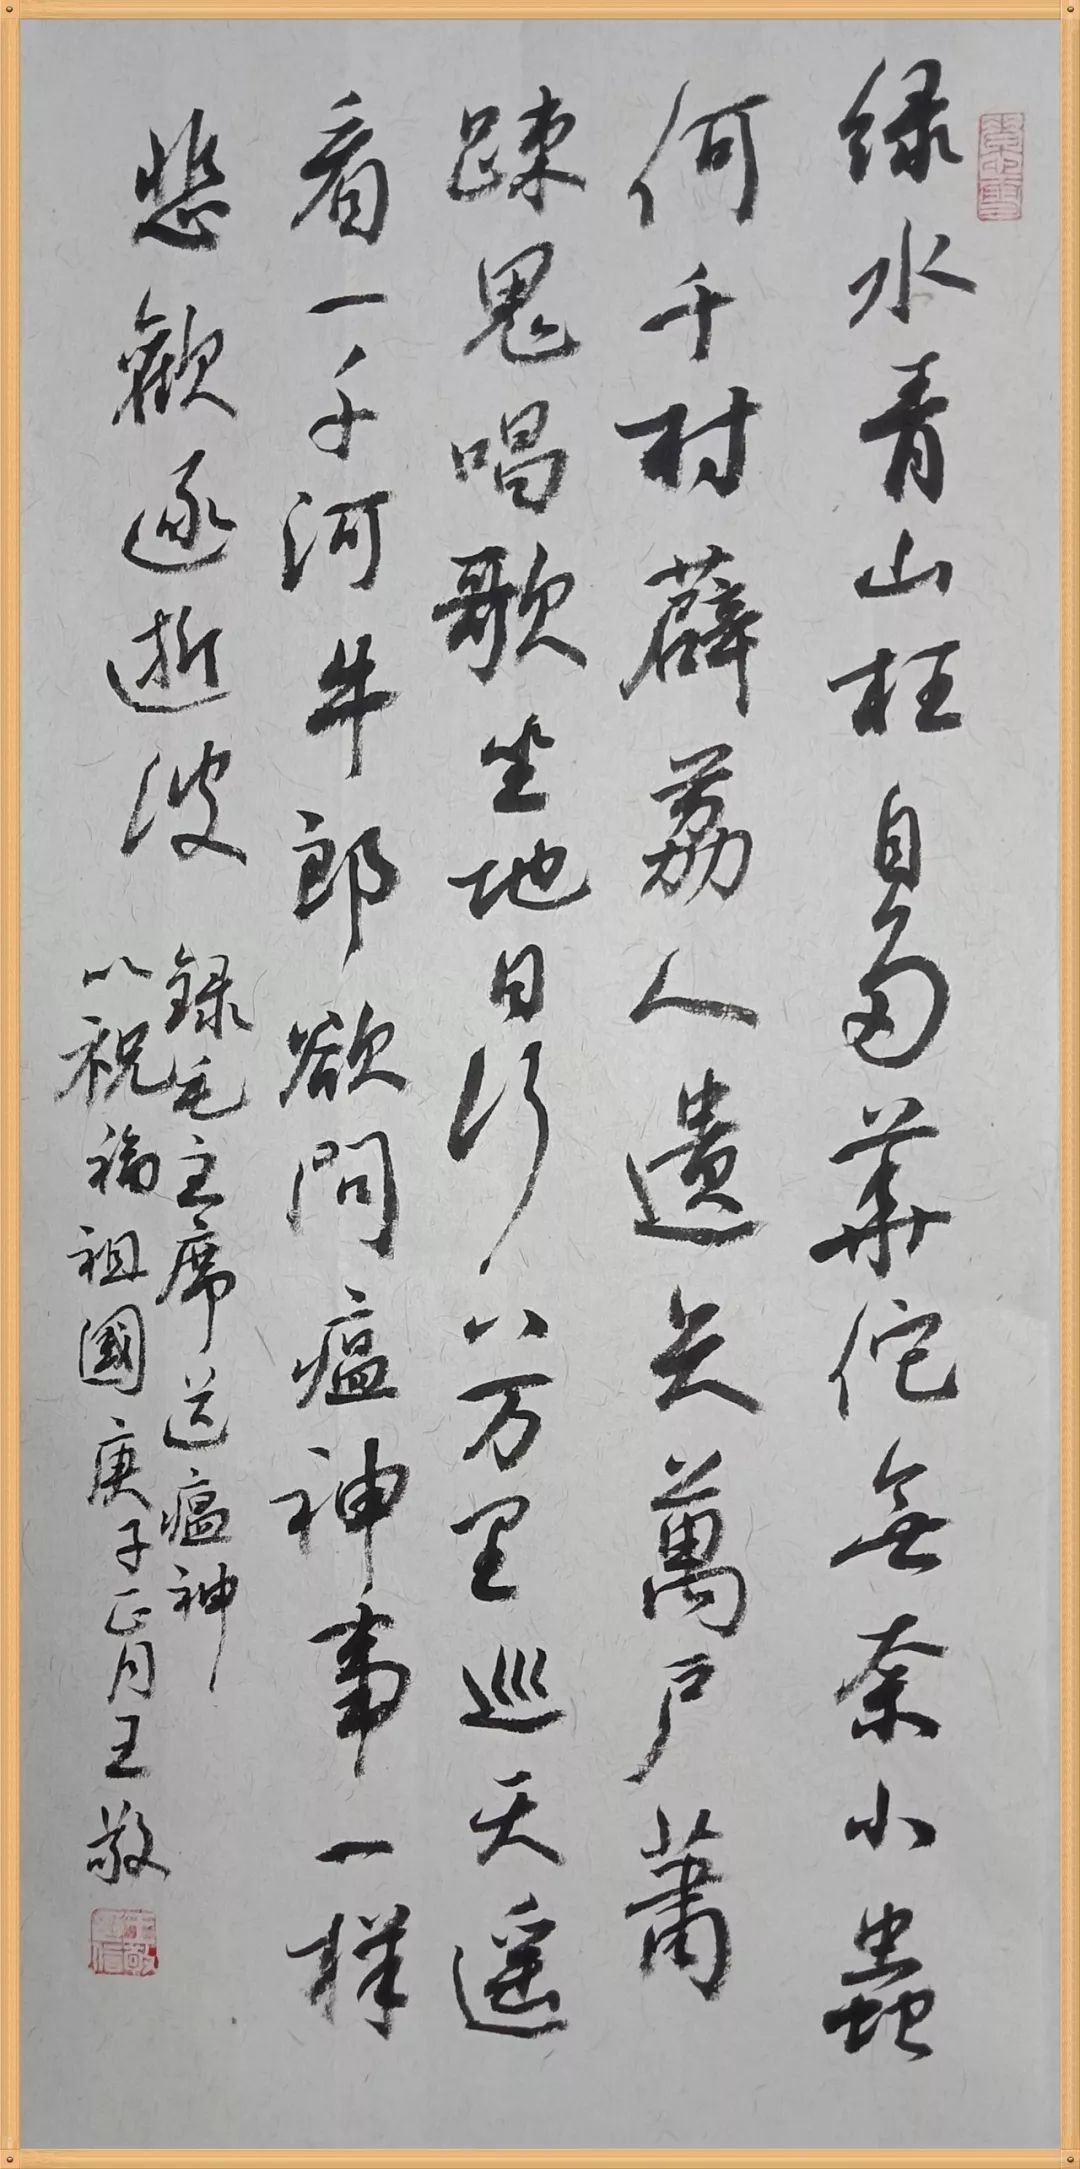 绿水青山枉自多華佗無奈小蟲
何千村薜荔人遺矢萬户蕭
踈鬼唱歌坐地日行八万里巡天遥
看一千河牛郎欲问瘟神事一样
悲歡逐逝波
録毛主席送瘟神
以祝福祖國庚子正月王敬